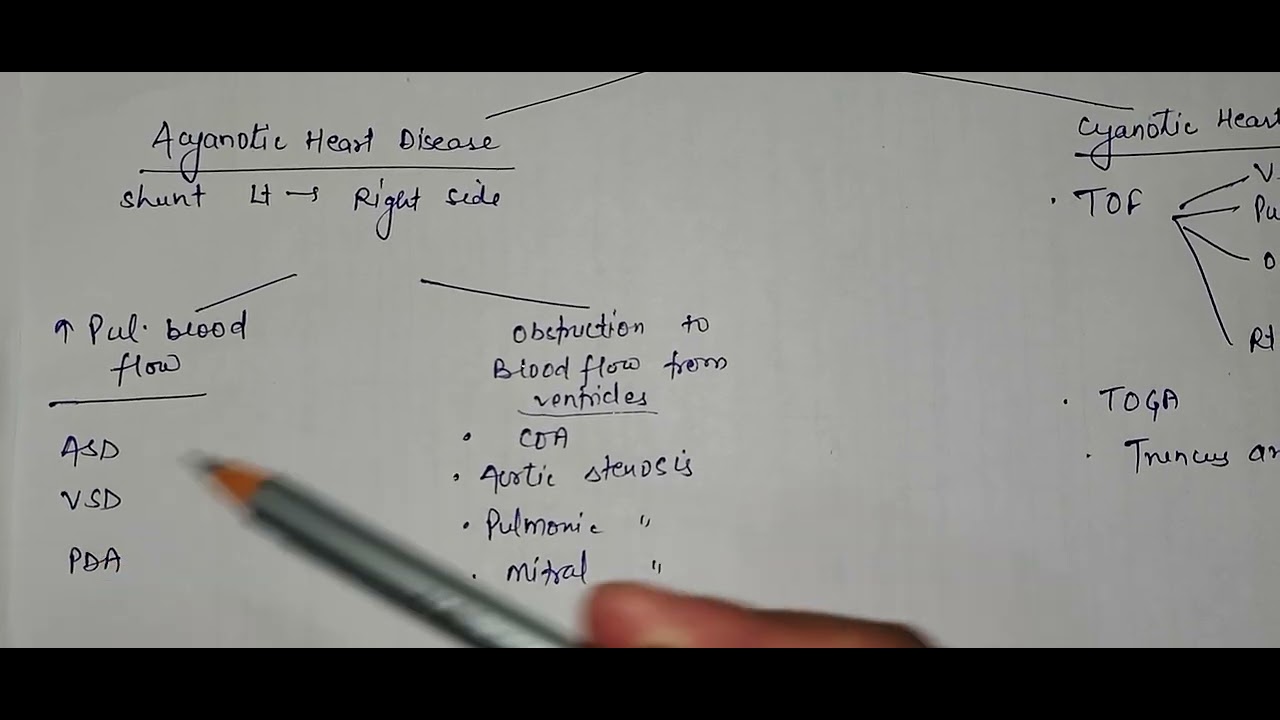 Acyanotic Heart Disease
shunt Lt → Right side
↑ Pul. blood
flow
ASD
VSD
PDA
Obstruction to
Blood flow from
ventricles
• COA
• Aortic stenosis
• Pulmonic "
• Mitral "
Cyanotic Heart
• TOF
Rt
• TOGA
• Truncus